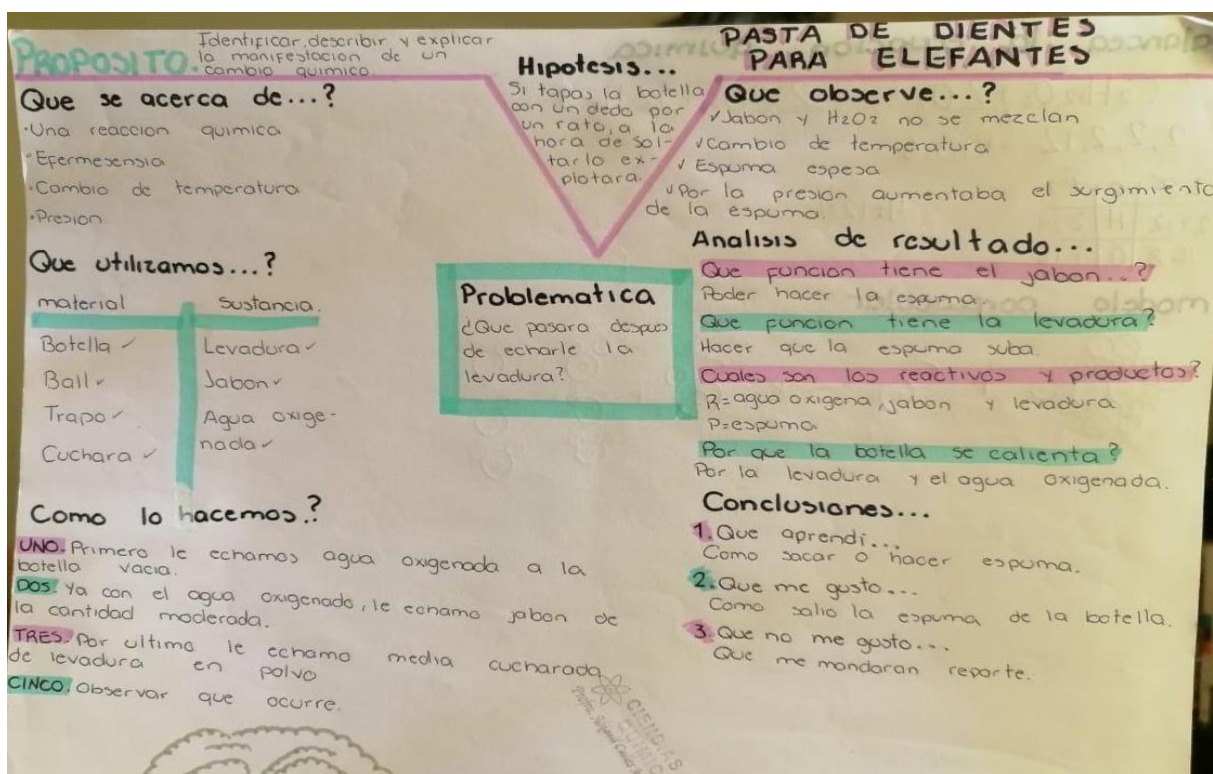 PROPOSITO.
Identificar, describir y explicar
la manifestacion de un
cambio quimico.
Que se acerca de...?
·Una reaccion quimica
·Efermesensia
·Cambio de temperatura
·Presion
Que utilizamos...?
material
Sustancia.
Botella ✓
Levadura ✓
Ball ✓
Jabon ✓
Trapo ✓
Agua oxige-
nada ✓
Cuchara ✓
Como lo hacemos?
UNO. Primero le echamos agua oxigenada a la
botella vacia.
DOS. Ya con el agua oxigenado, le echamo jabon de
la cantidad moderada.
TRES. Por ultimo le echamo media cucharada
de levadura en polvo
CINCO. Observar que ocurre.
Hipotesis...
Si tapas la botella
con un dedo por
un rato, a la
hora de sol-
tarlo ex-
plotara.
Problematica
¿Que pasara despues
de echarle la
levadura?
PASTA DE DIENTES
PARA ELEFANTES
Que observe...?
✓Jabon y H2O2 no se mezclan
✓Cambio de temperatura
✓Espuma espesa
✓Por la presion aumentaba el surgimiento
de la espuma.
Analisis de resultado...
Que funcion tiene el jabon..?
Poder hacer la espuma
Que funcion tiene la levadura?
Hacer que la espuma suba.
Cuales son los reactivos y productos?
R=agua oxigena, jabon y levadura
P=espuma
Por que la botella se calienta?
Por la levadura y el agua oxigenada.
Conclusiones...
1. Que aprendi...
Como sacar o hacer espuma.
2. Que me gusto...
Como salio la espuma de la botella.
3. Que no me gusto...
Que me mandaran reporte.
CIENCIAS